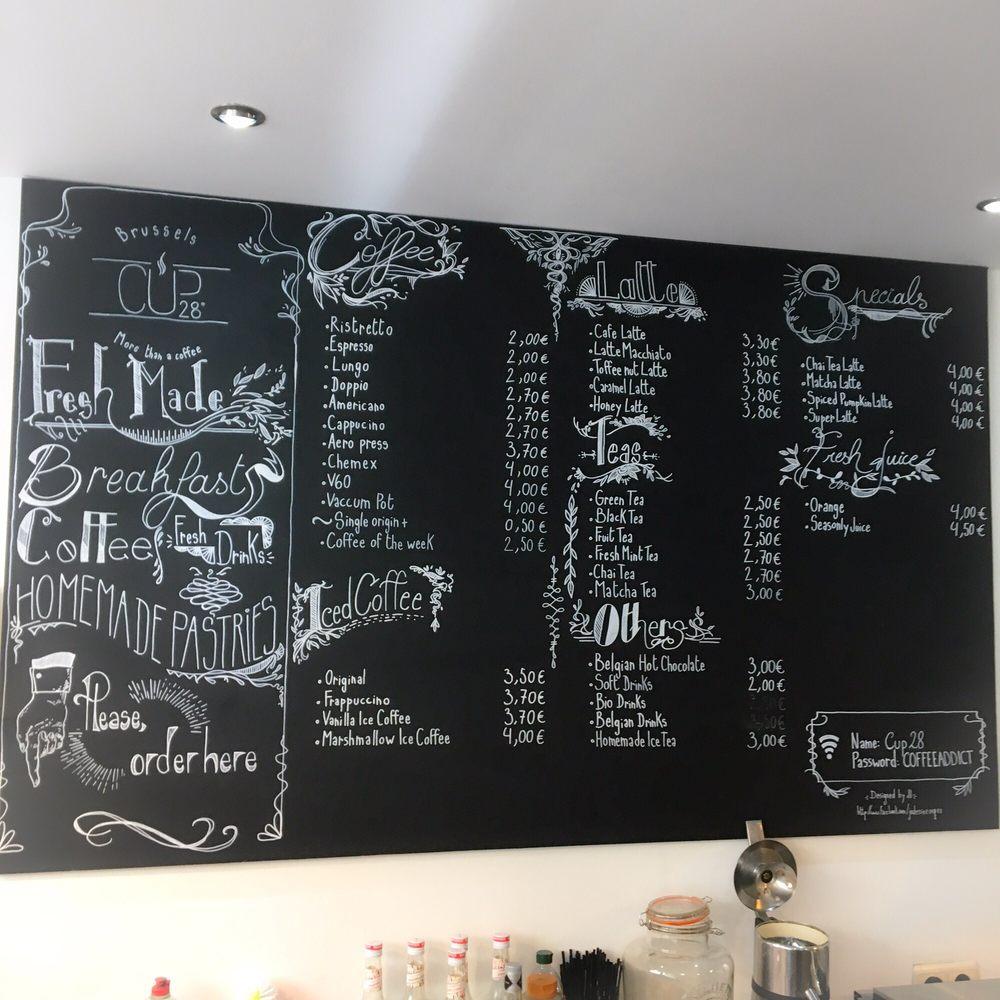 Brussels
CUP
28°
More than a coffee
Fresh Made
Breakfast
Coffee
Fresh Drinks
HOMEMADE PASTRIES
Please,
order here
Coffee
• Ristretto 2,00€
• Espresso 2,00€
• Lungo 2,00€
• Doppio 2,70€
• Americano 2,70€
• Cappucino 2,70€
• Aero press 3,70€
• Chemex 4,00€
• V60 4,00€
• Vaccum Pot 4,00€
~ Single origin + 0,50€
• Coffee of the week 2,50€
Iced Coffee
• Original 3,50€
• Frappuccino 3,70€
• Vanilla Ice Coffee 3,70€
• Marshmallow Ice Coffee 4,00€
Latte
• Cafe Latte 3,30€
• Latte Macchiato 3,30€
• Toffee nut Latte 3,80€
• Caramel Latte 3,80€
• Honey Latte 3,80€
Teas
• Green Tea 2,50€
• Black Tea 2,50€
• Fruit Tea 2,50€
• Fresh Mint Tea 2,70€
• Chai Tea 2,70€
• Matcha Tea 3,00€
Others
• Belgian Hot Chocolate 3,00€
• Soft Drinks 2,00€
• Bio Drinks
• Belgian Drinks
• Homemade Ice Tea 3,00€
Specials
• Chai Tea Latte 4,00€
• Matcha Latte 4,00€
• Spiced Pumpkin Latte 4,00€
• Super Latte 4,00€
Fresh Juice
• Orange 4,00€
• Seasonly Juice 4,50€
Name: Cup 28
Password: COFFEEADDICT
Designed by